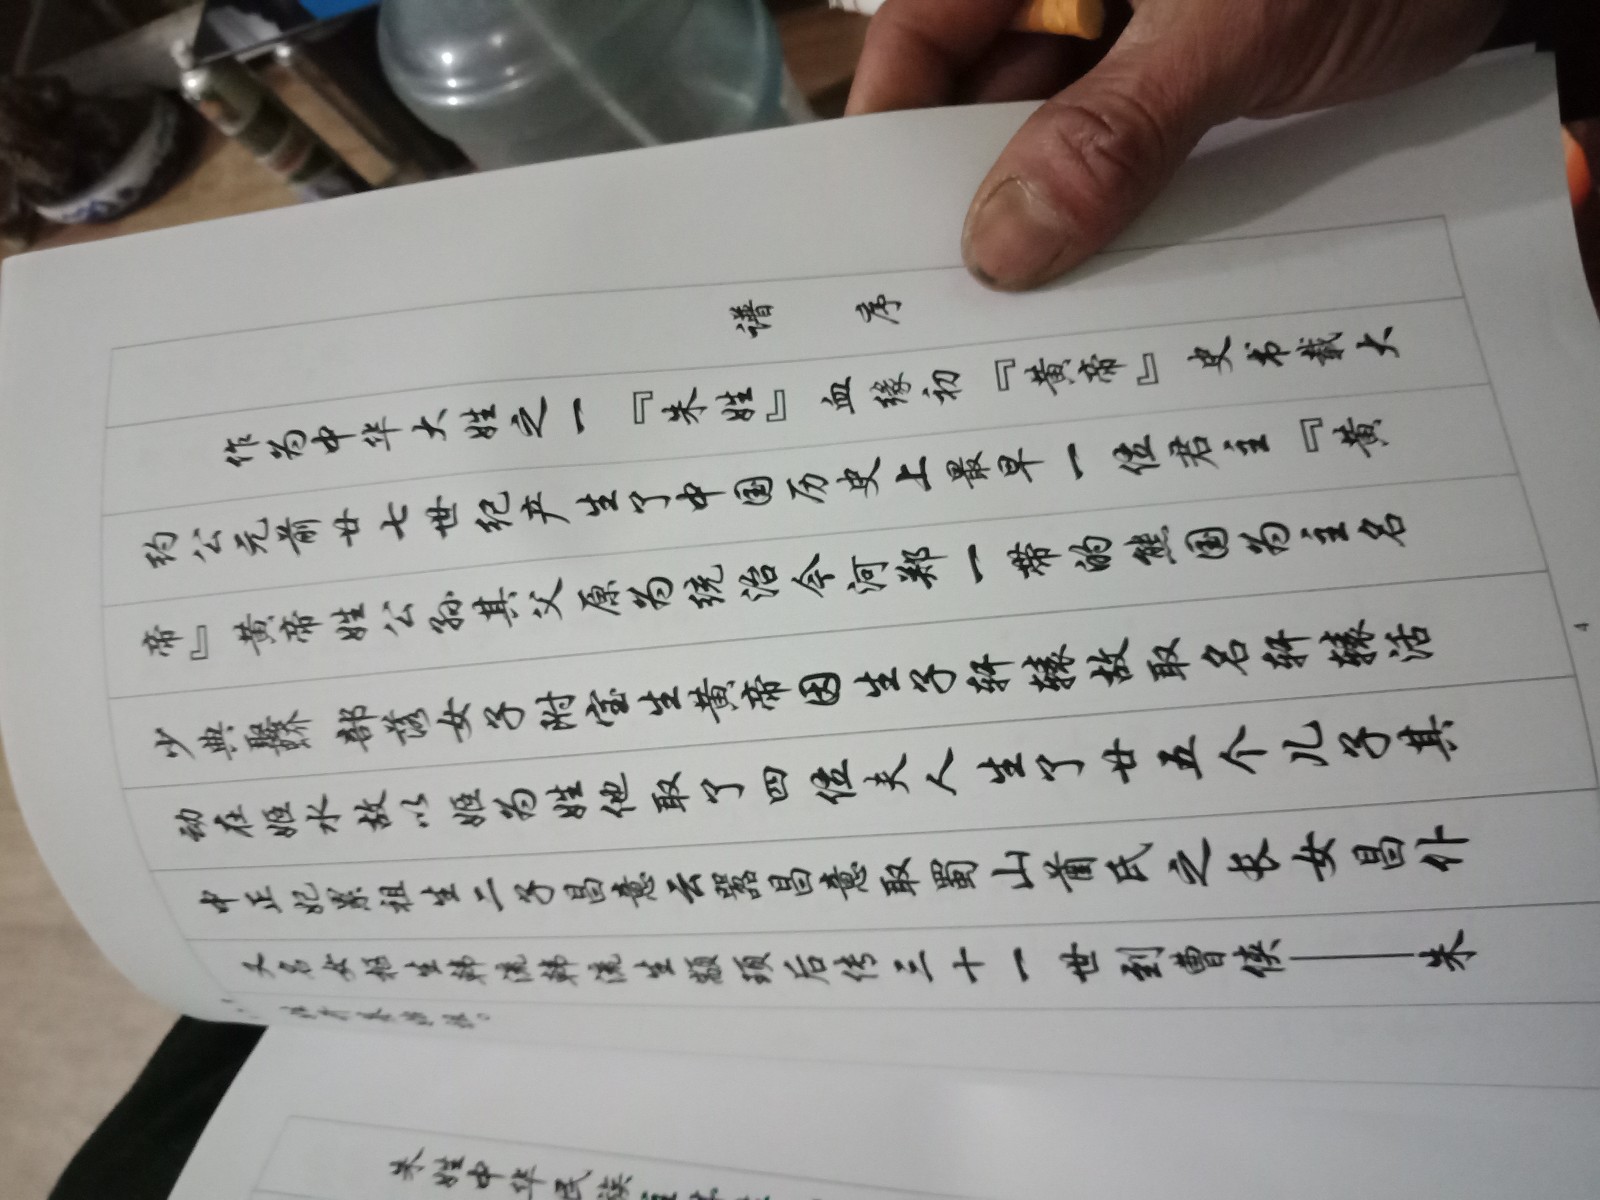 谱 序
作为中华大姓之一『朱姓』血缘初『黄帝』史书载大
约公元前廿七世纪产生了中国历史上最早一位君主『黄
帝』黄帝姓公孙其父原为统治今河郑一带的熊国为主名
少典 部落女子附宝生黄帝因生子轩辕故取名轩辕活
动在姬水故以姬为姓他取了四位夫人生了廿五个儿子其
中正妃累祖生二子昌意玄嚣昌意取蜀山首氏之长女昌仆
又名女枢生韩流韩流生颛顼后传三十一世到曹侠——朱
4
朱姓中华民族